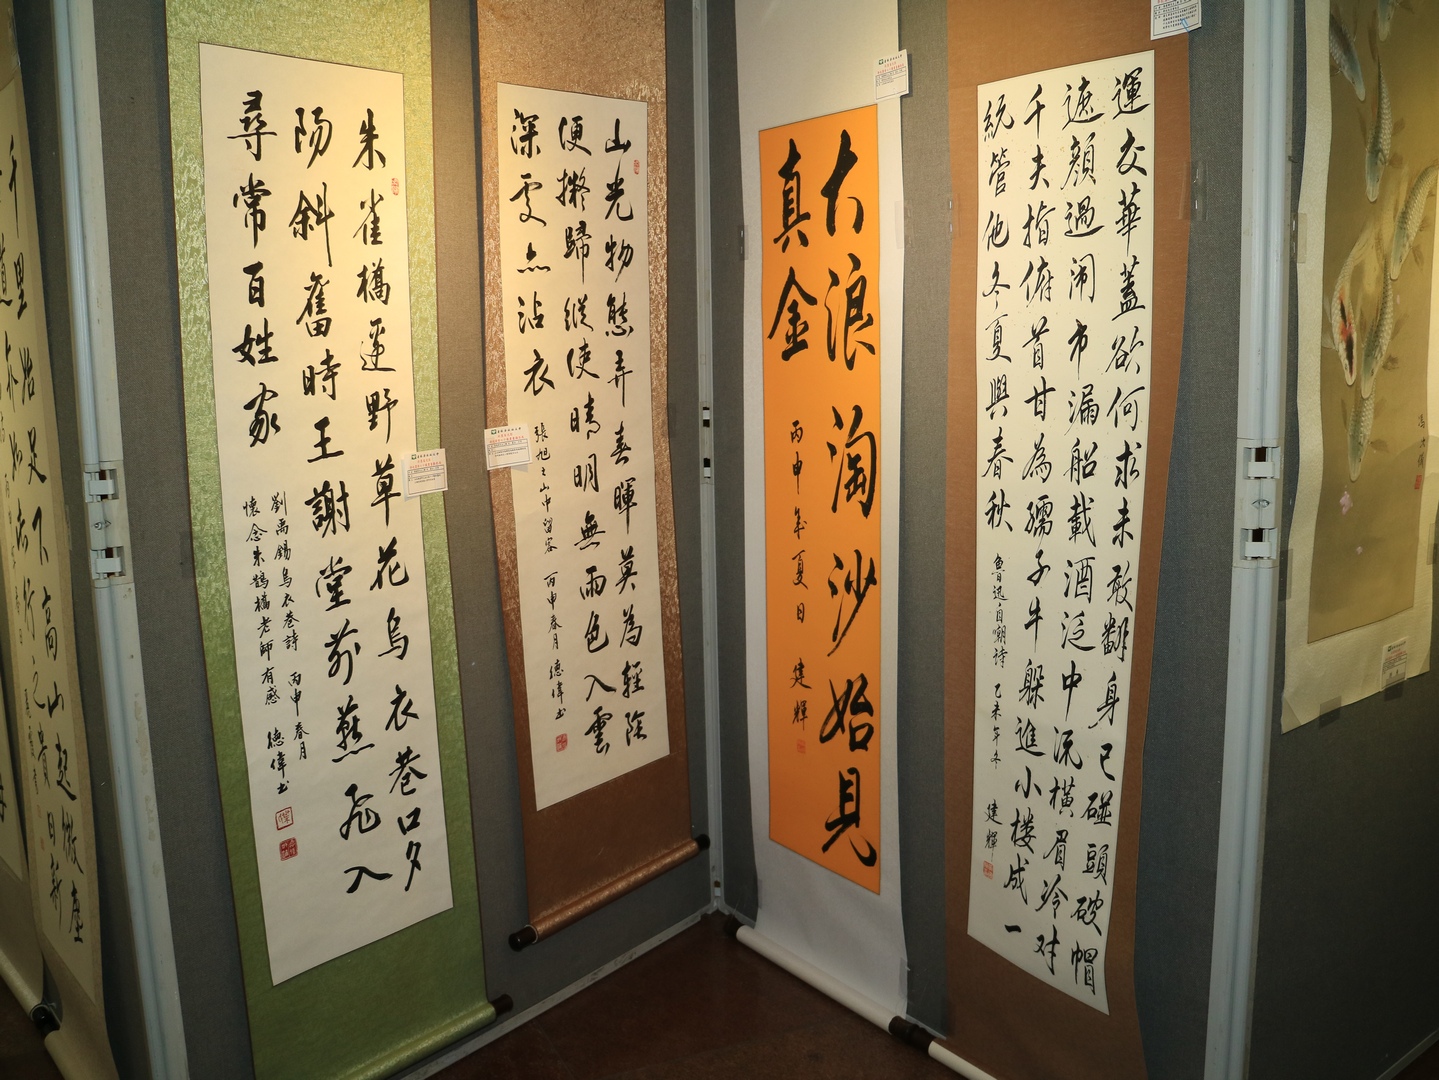 朱雀橋邊野草花烏衣巷口夕
陽斜舊時王謝堂前燕飛入
尋常百姓家
劉禹錫烏衣巷詩 丙申春月
懷念朱鵲橋老師有感 德偉书
山光物態弄春暉莫為輕陰
便擬歸縱使晴明無雨色入雲
深處亦沾衣
張旭之山中留客 丙申春月 德偉书
大浪淘沙始見
真金
丙申年夏日 建輝
運交華蓋欲何求未敢翻身已碰頭破帽
遮顏過闹市漏船載酒泛中流橫眉冷对
千夫指俯首甘為孺子牛躲進小楼成一
統管他冬夏與春秋
魯迅自嘲诗 乙未年冬 建輝
千里始足下高山起微塵
道亦如此行之貴日新